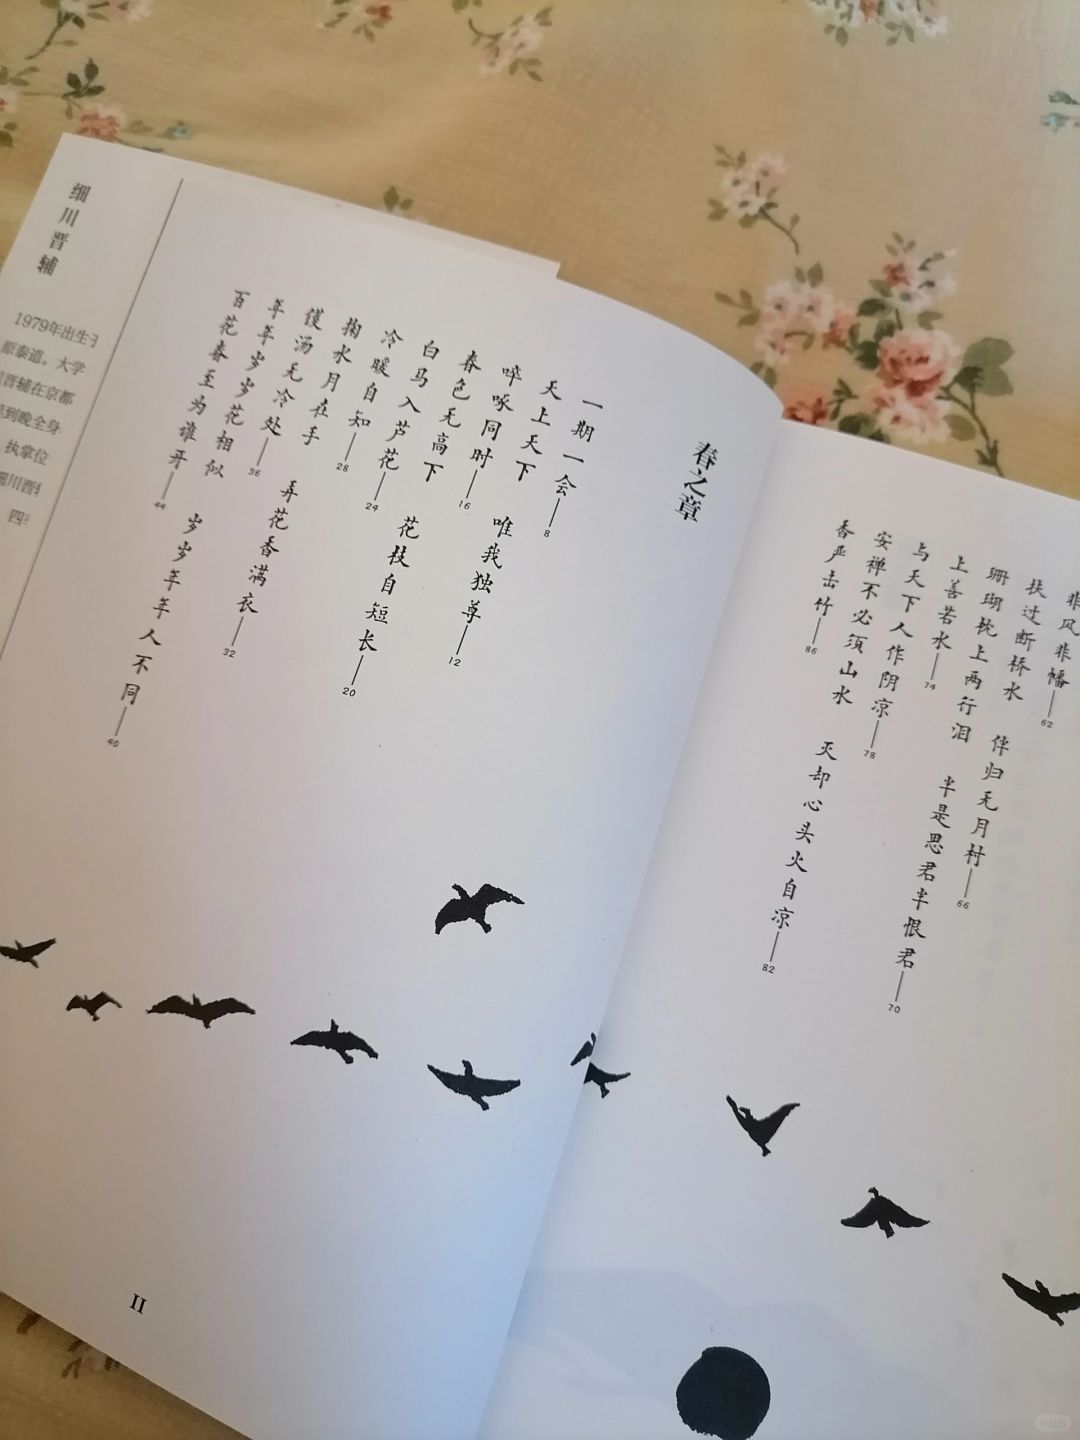 细川晋辅
1979年出生
原泰道。大学
晋辅在京都
到晚全身
执掌位
细川晋
四
春之章
一期一会——8
天上天下 唯我独尊——12
啐啄同时——16
春色无高下 花枝自短长——20
白马入芦花——24
冷暖自知——28
掬水月在手 弄花香满衣——32
镬汤无冷处——36
年年岁岁花相似 岁岁年年人不同——40
百花春至为谁开——44
II
非风非幡——62
扶过断桥水 伴归无月村——66
珊瑚枕上两行泪 半是思君半恨君——70
上善若水——74
与天下人作阴凉——78
安禅不必须山水 灭却心头火自凉——82
香严击竹——86